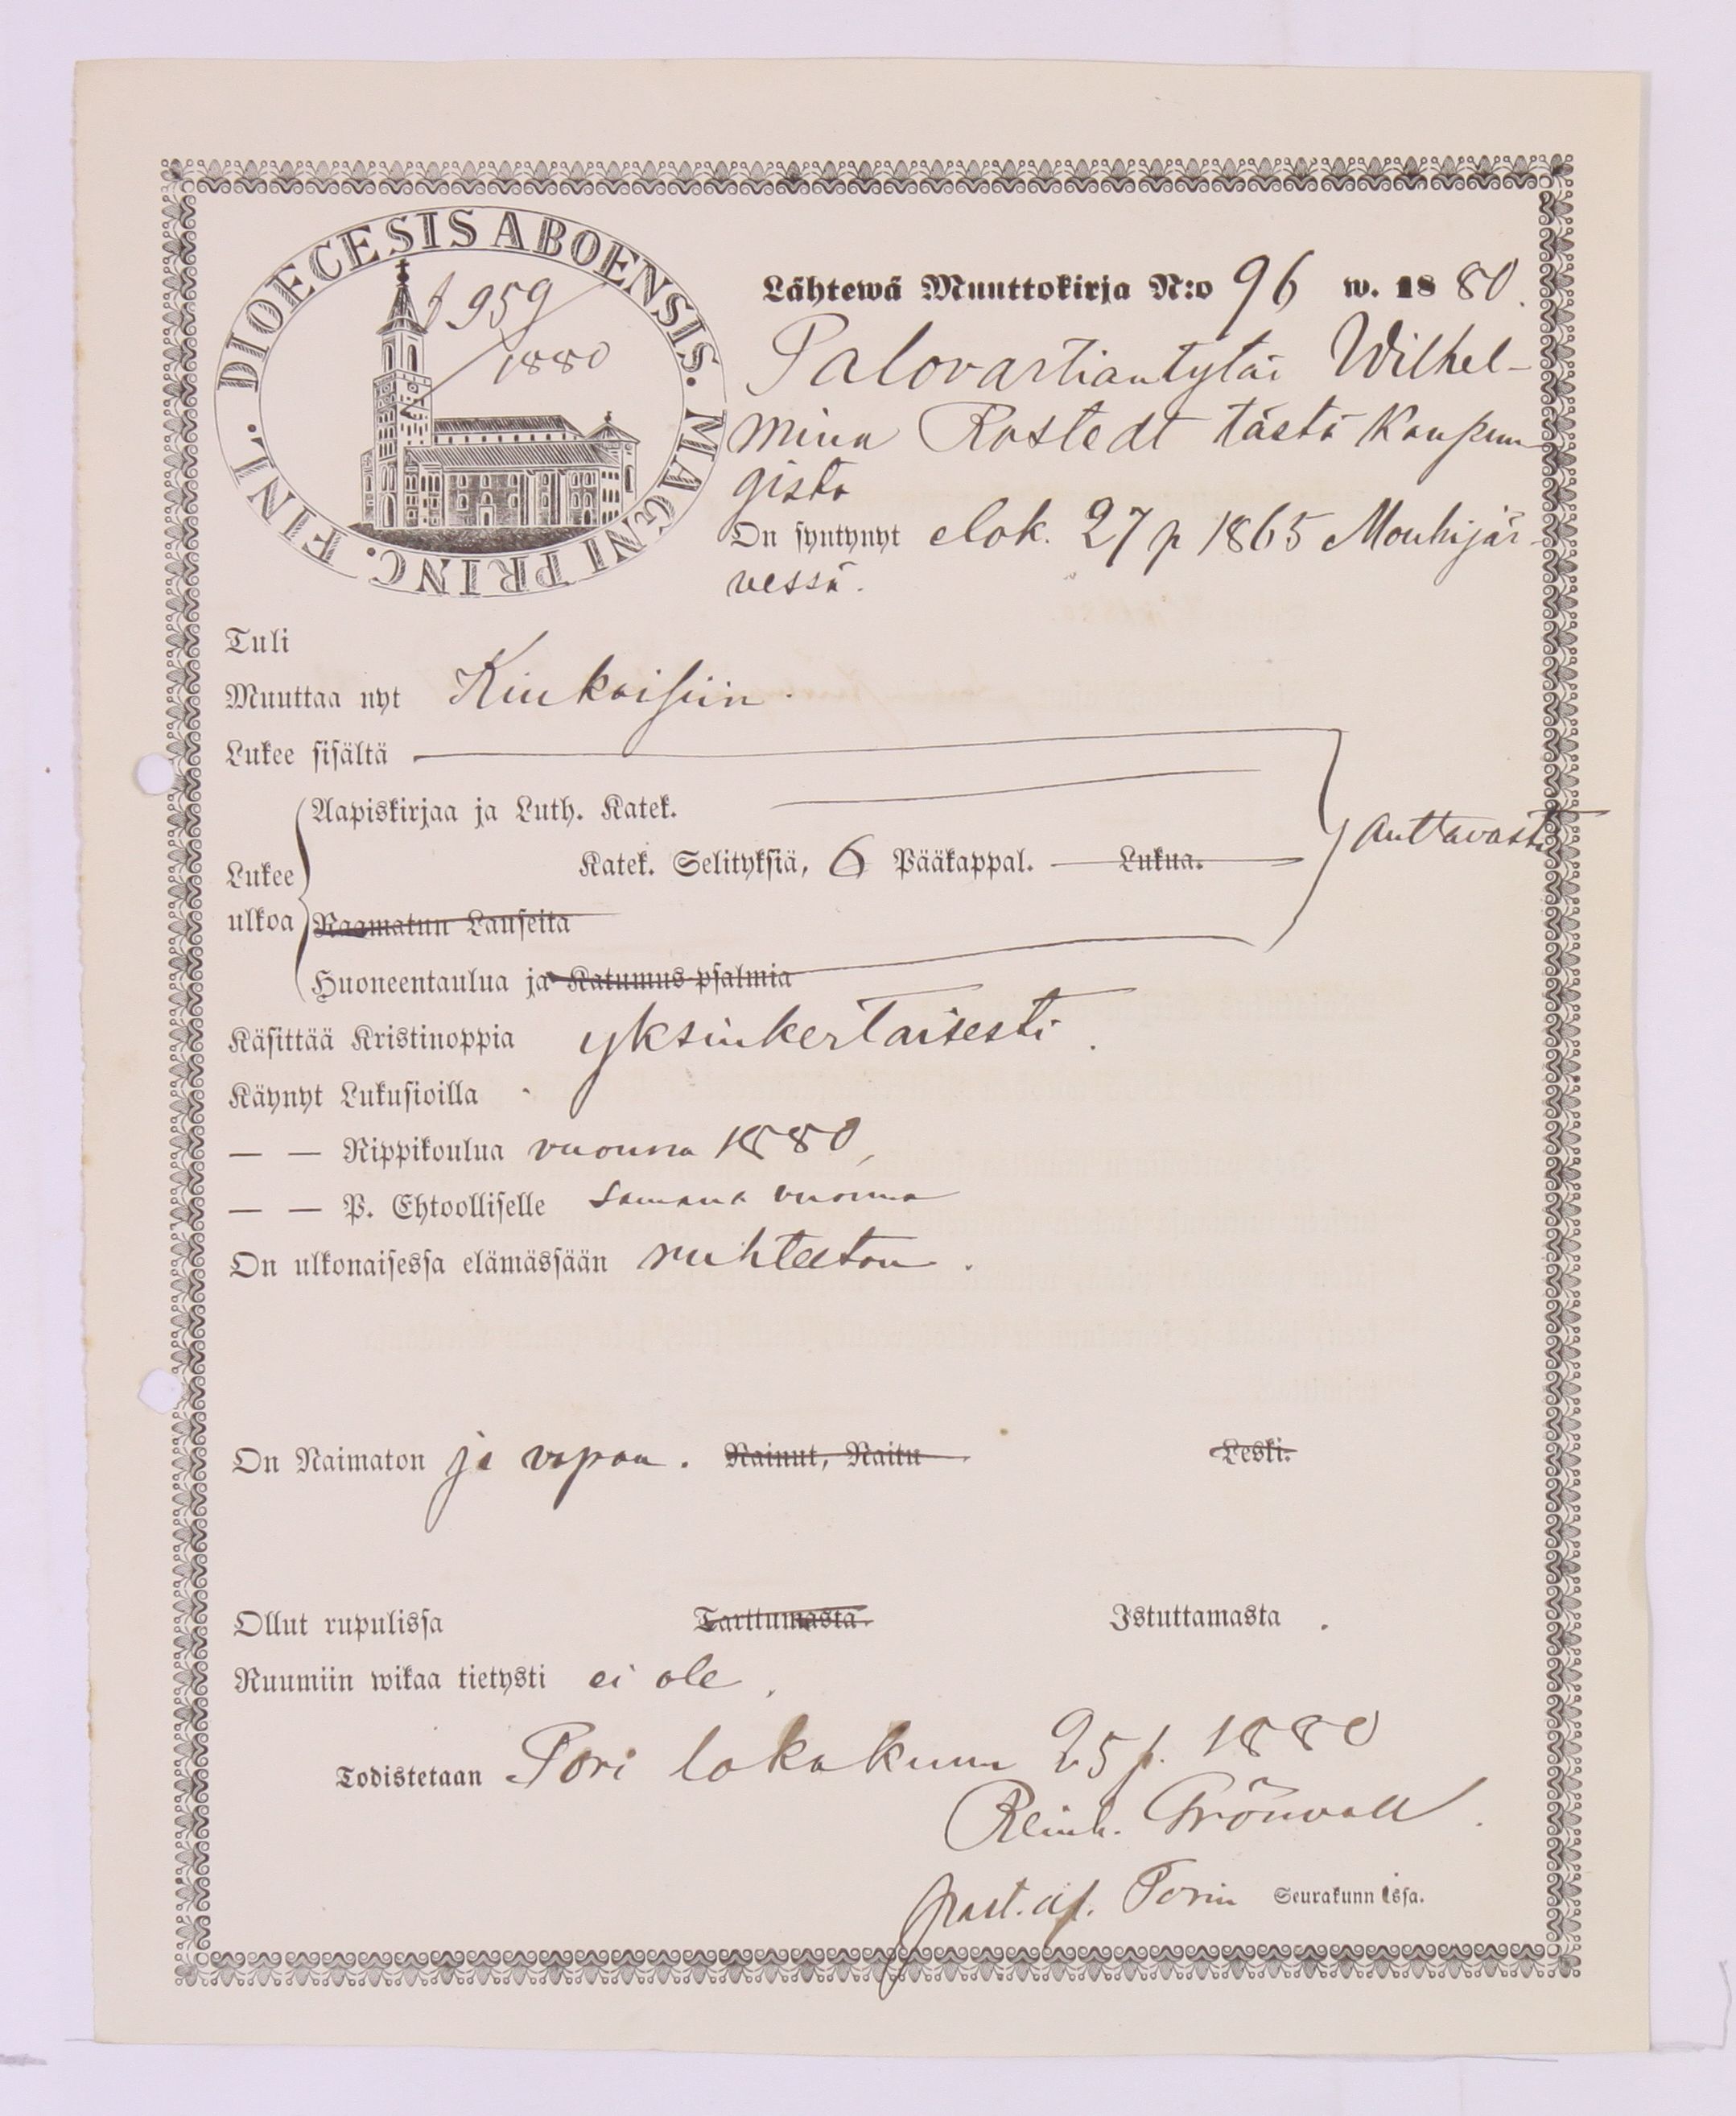 DIOECESIS ABOENSIS. MAGNI PRINC. FINL.
f 959
1880
Lähtewä Muuttokirja N:o 96 w. 1880.
Palovartiantytär Wilhel-
mina Rostedt tästä Kaupun
gista
On syntynyt elok. 27 p 1865 Mouhijär-
vessä.
Tuli
Muuttaa nyt Kiukaisiin.
Lukee sisältä
Aapiskirjaa ja Luth. Katek.
Katek. Selityksiä, 6 Pääkappal. Lukua. auttavasti
Lukee
ulkoa Raamatun Lauseita
Huoneentaulua ja Katumus-psalmia
Käsittää Kristinoppia yksinkertaisesti.
Käynyt Lukusioilla
— — Rippikoulua vuonna 1880,
— — P. Ehtoolliselle samana vuonna
On ulkonaisessa elämässään nuhteeton.
On Naimaton ja vapaa. Nainut, Naitu Leski.
Ollut rupulissa Tarttumasta. Istuttamasta.
Ruumiin wikaa tietysti ei ole.
Todistetaan Pori lokakuun 25 p. 1880
Reinh. Grönvall.
past. af. Porin Seurakunnissa.